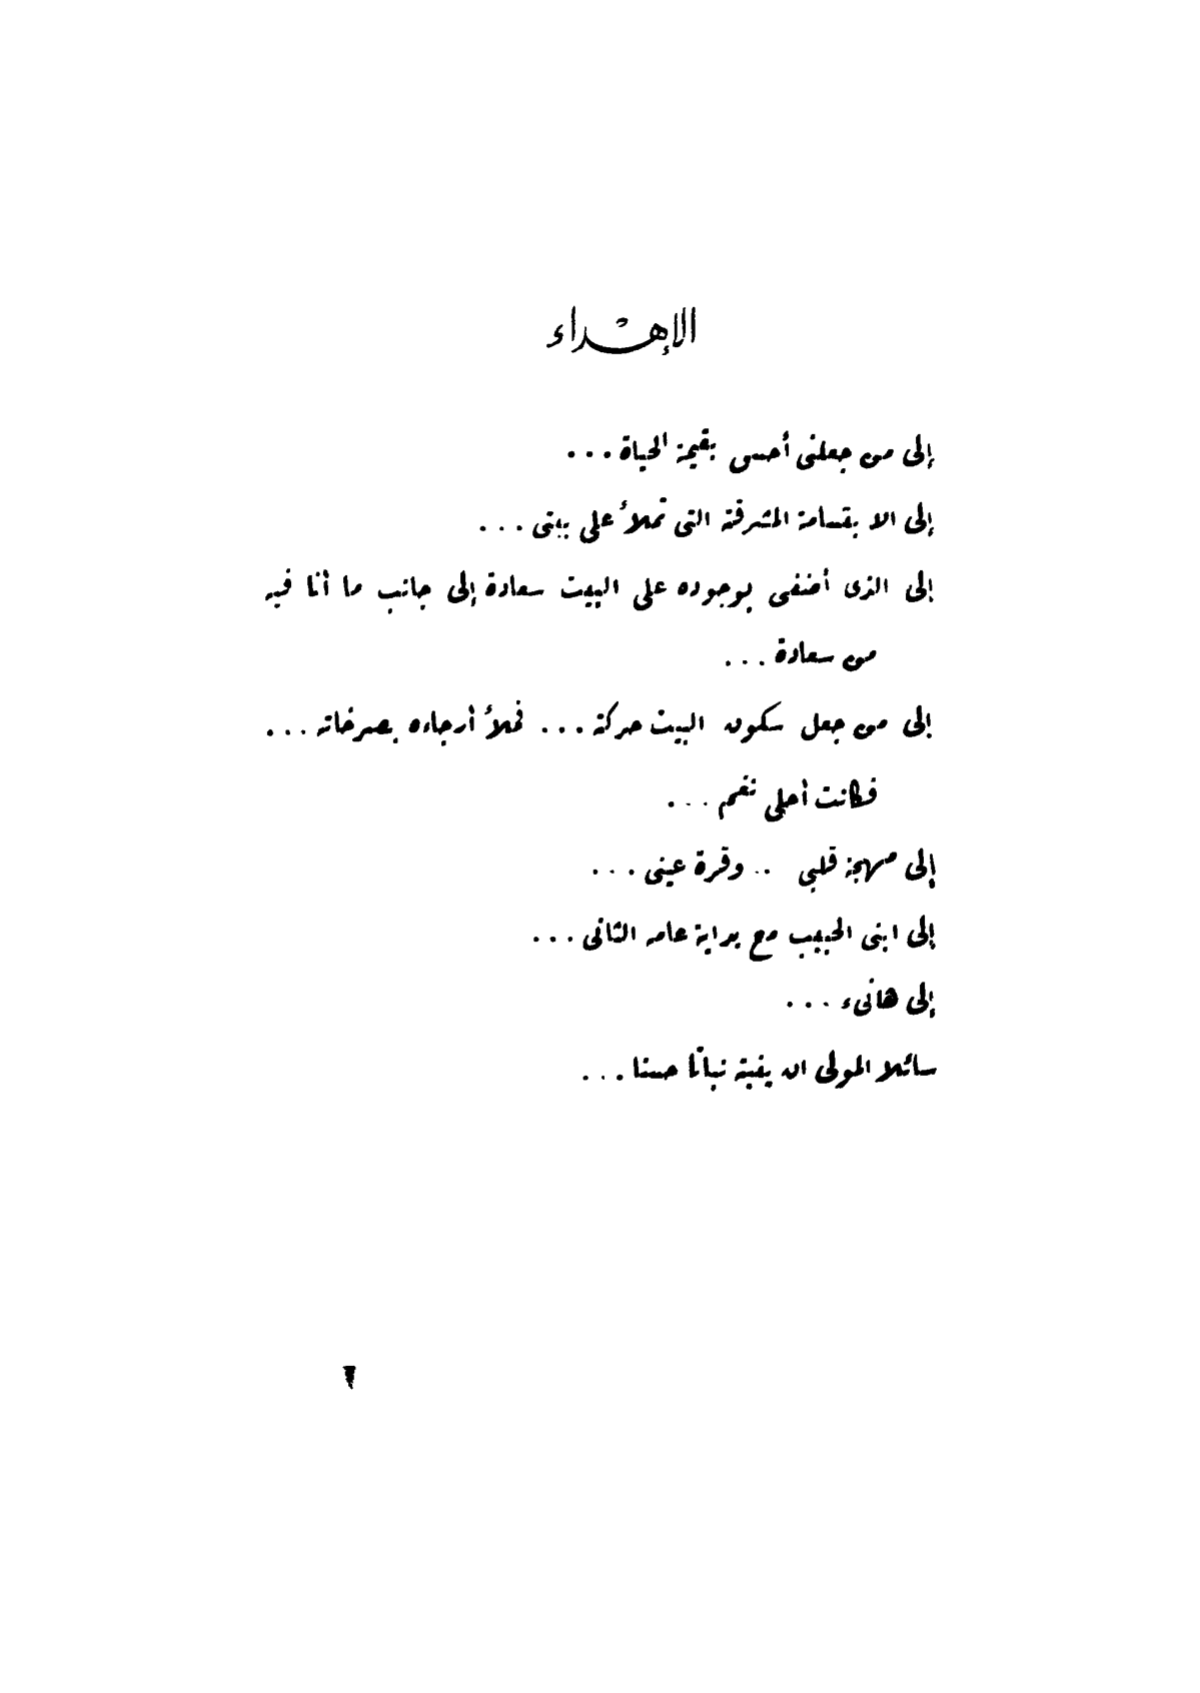 الإهداء
إلى من جعلنى أحس بقيمة الحياة ...
إلى الابتسامة المشرقة التى تملأ على بيتى ...
إلى الذى أضفى بوجوده على البيت سعادة إلى جانب ما أنا فيه
من سعادة ...
إلى من جعل سكون البيت حركة ... فملأ أرجاءه بصرخاته ...
فكانت أحلى نغم ...
إلى مهجة قلبى .. وقرة عينى ...
إلى ابنى الحبيب مع بداية عامه الثانى ...
إلى هانىء ...
سائلا المولى ان ينبته نباتا حسنا ...